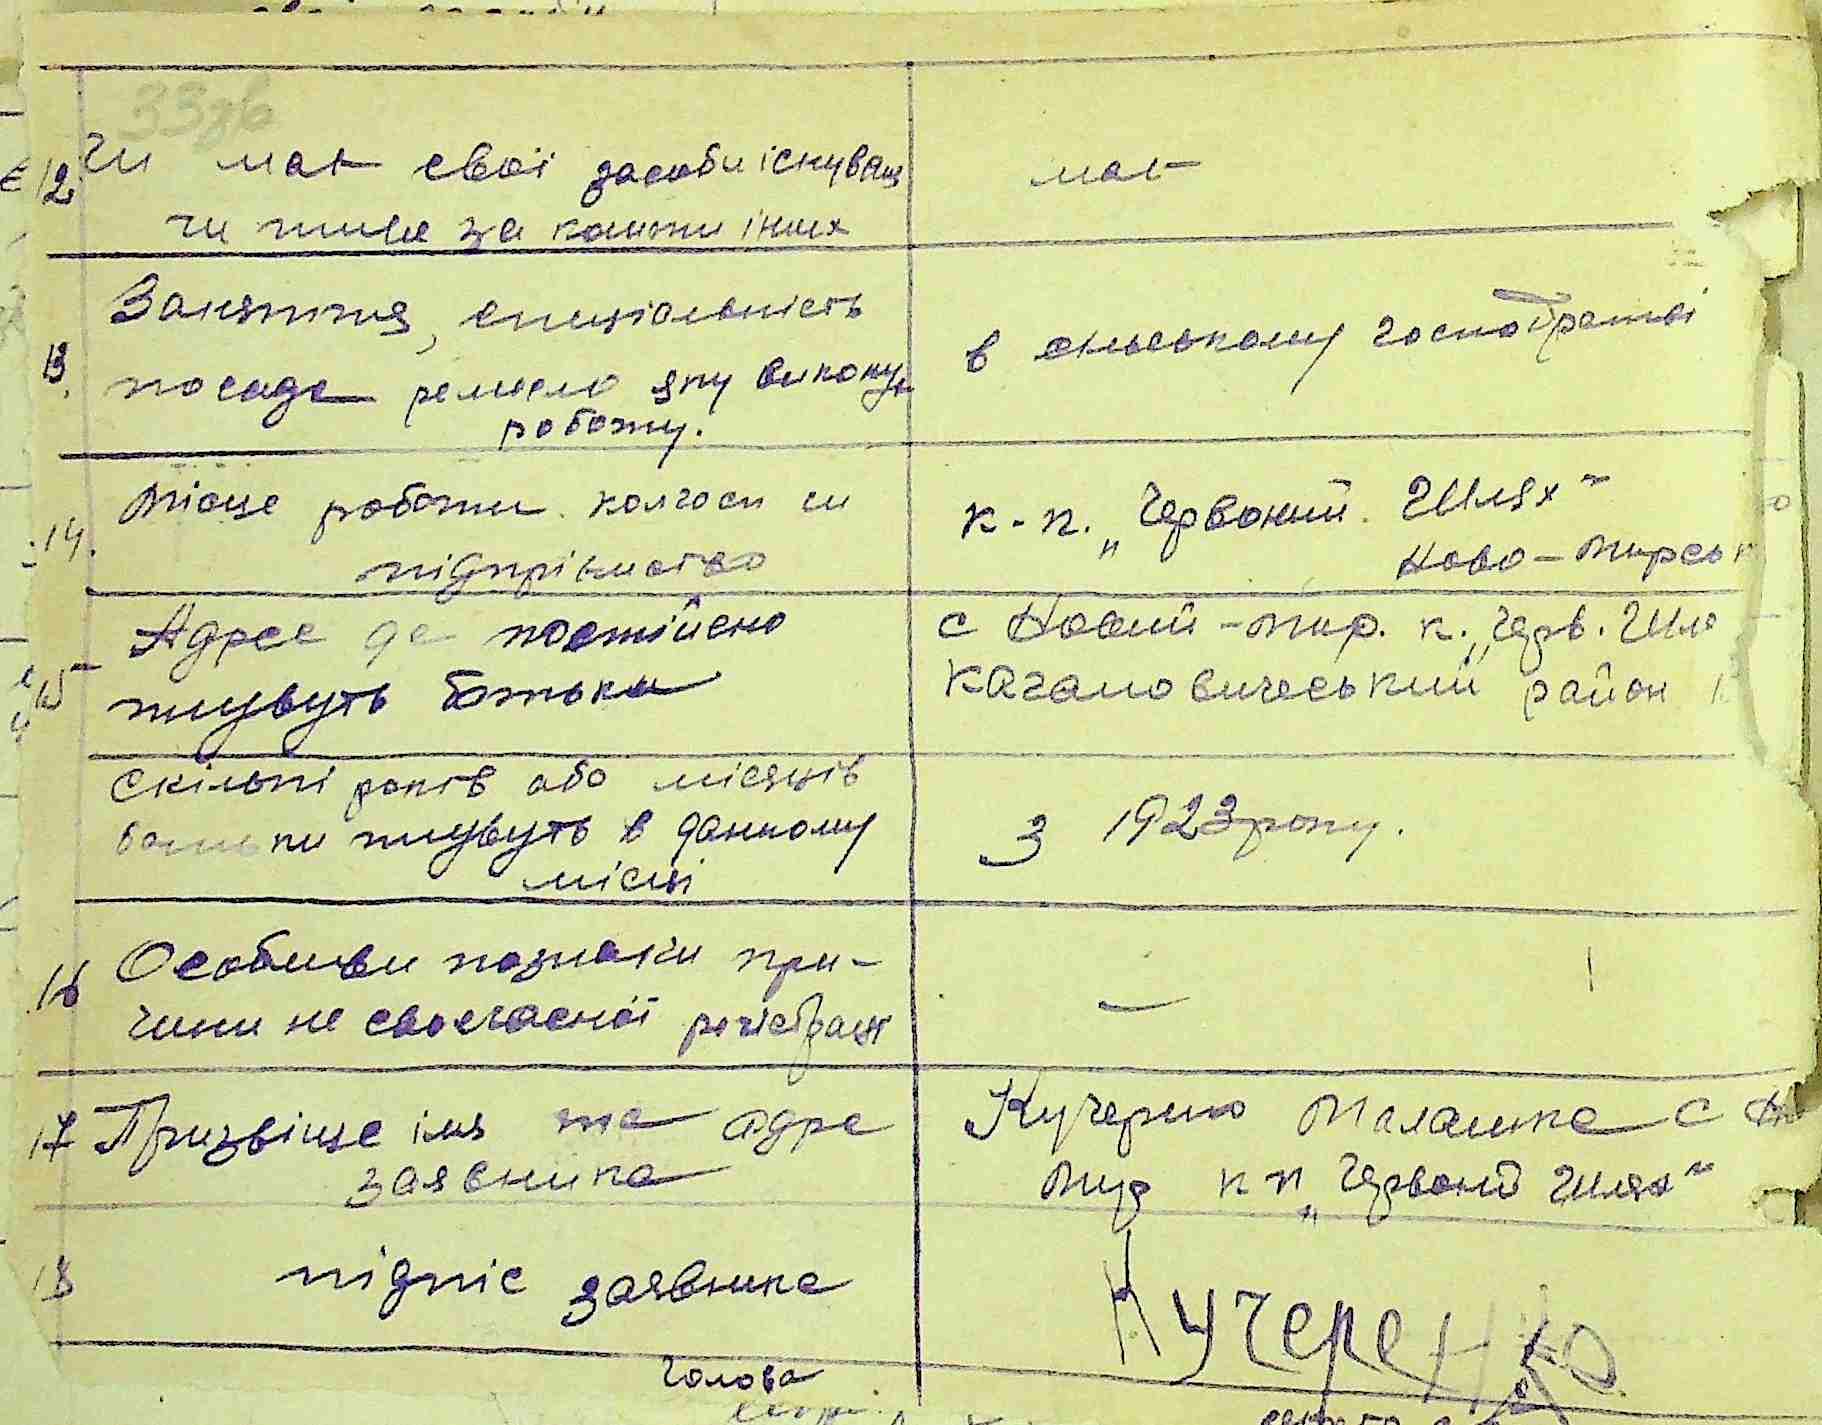 33зв
12. Чи має свої засоби існуван
чи живе за кошти інших
має
13. Заняття, спеціальність
посада ремесло яку виконує
роботу.
в сільському господратві
14. Місце роботи колгосп чи
підприємство
к-п. „Червоний Шлях"
Ново-Мирськ
15 Адрес де постійно
живуть батьки
с Новий-Мир. к. „Черв. Шля
Кагановичеський район
Скількі років або місяців
батьки живуть в данному
місці
З 1923 року.
16 Особливи познаки при-
чини не своєчасної регістрації
—
17 Призвіще імя та адре
заявника
Кучерино Малашка с Н
Мир к п „Червоной Шлях"
18 підпіс заявника
Кучеренко
Голова